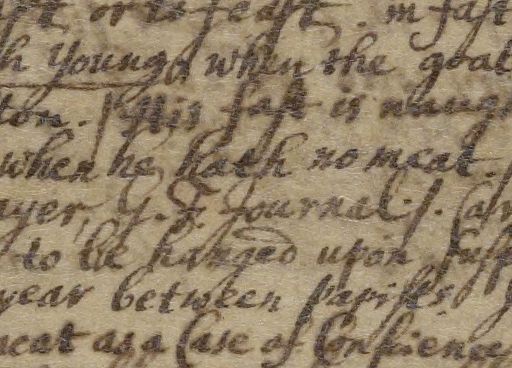 or is feast. in fast
h Young, when the goat
ton. / His fast is
when he hath no meat.
ayer, G. F. Journal: /.
to be hanged upon susp
year between papists
meat as a Case of Conscience